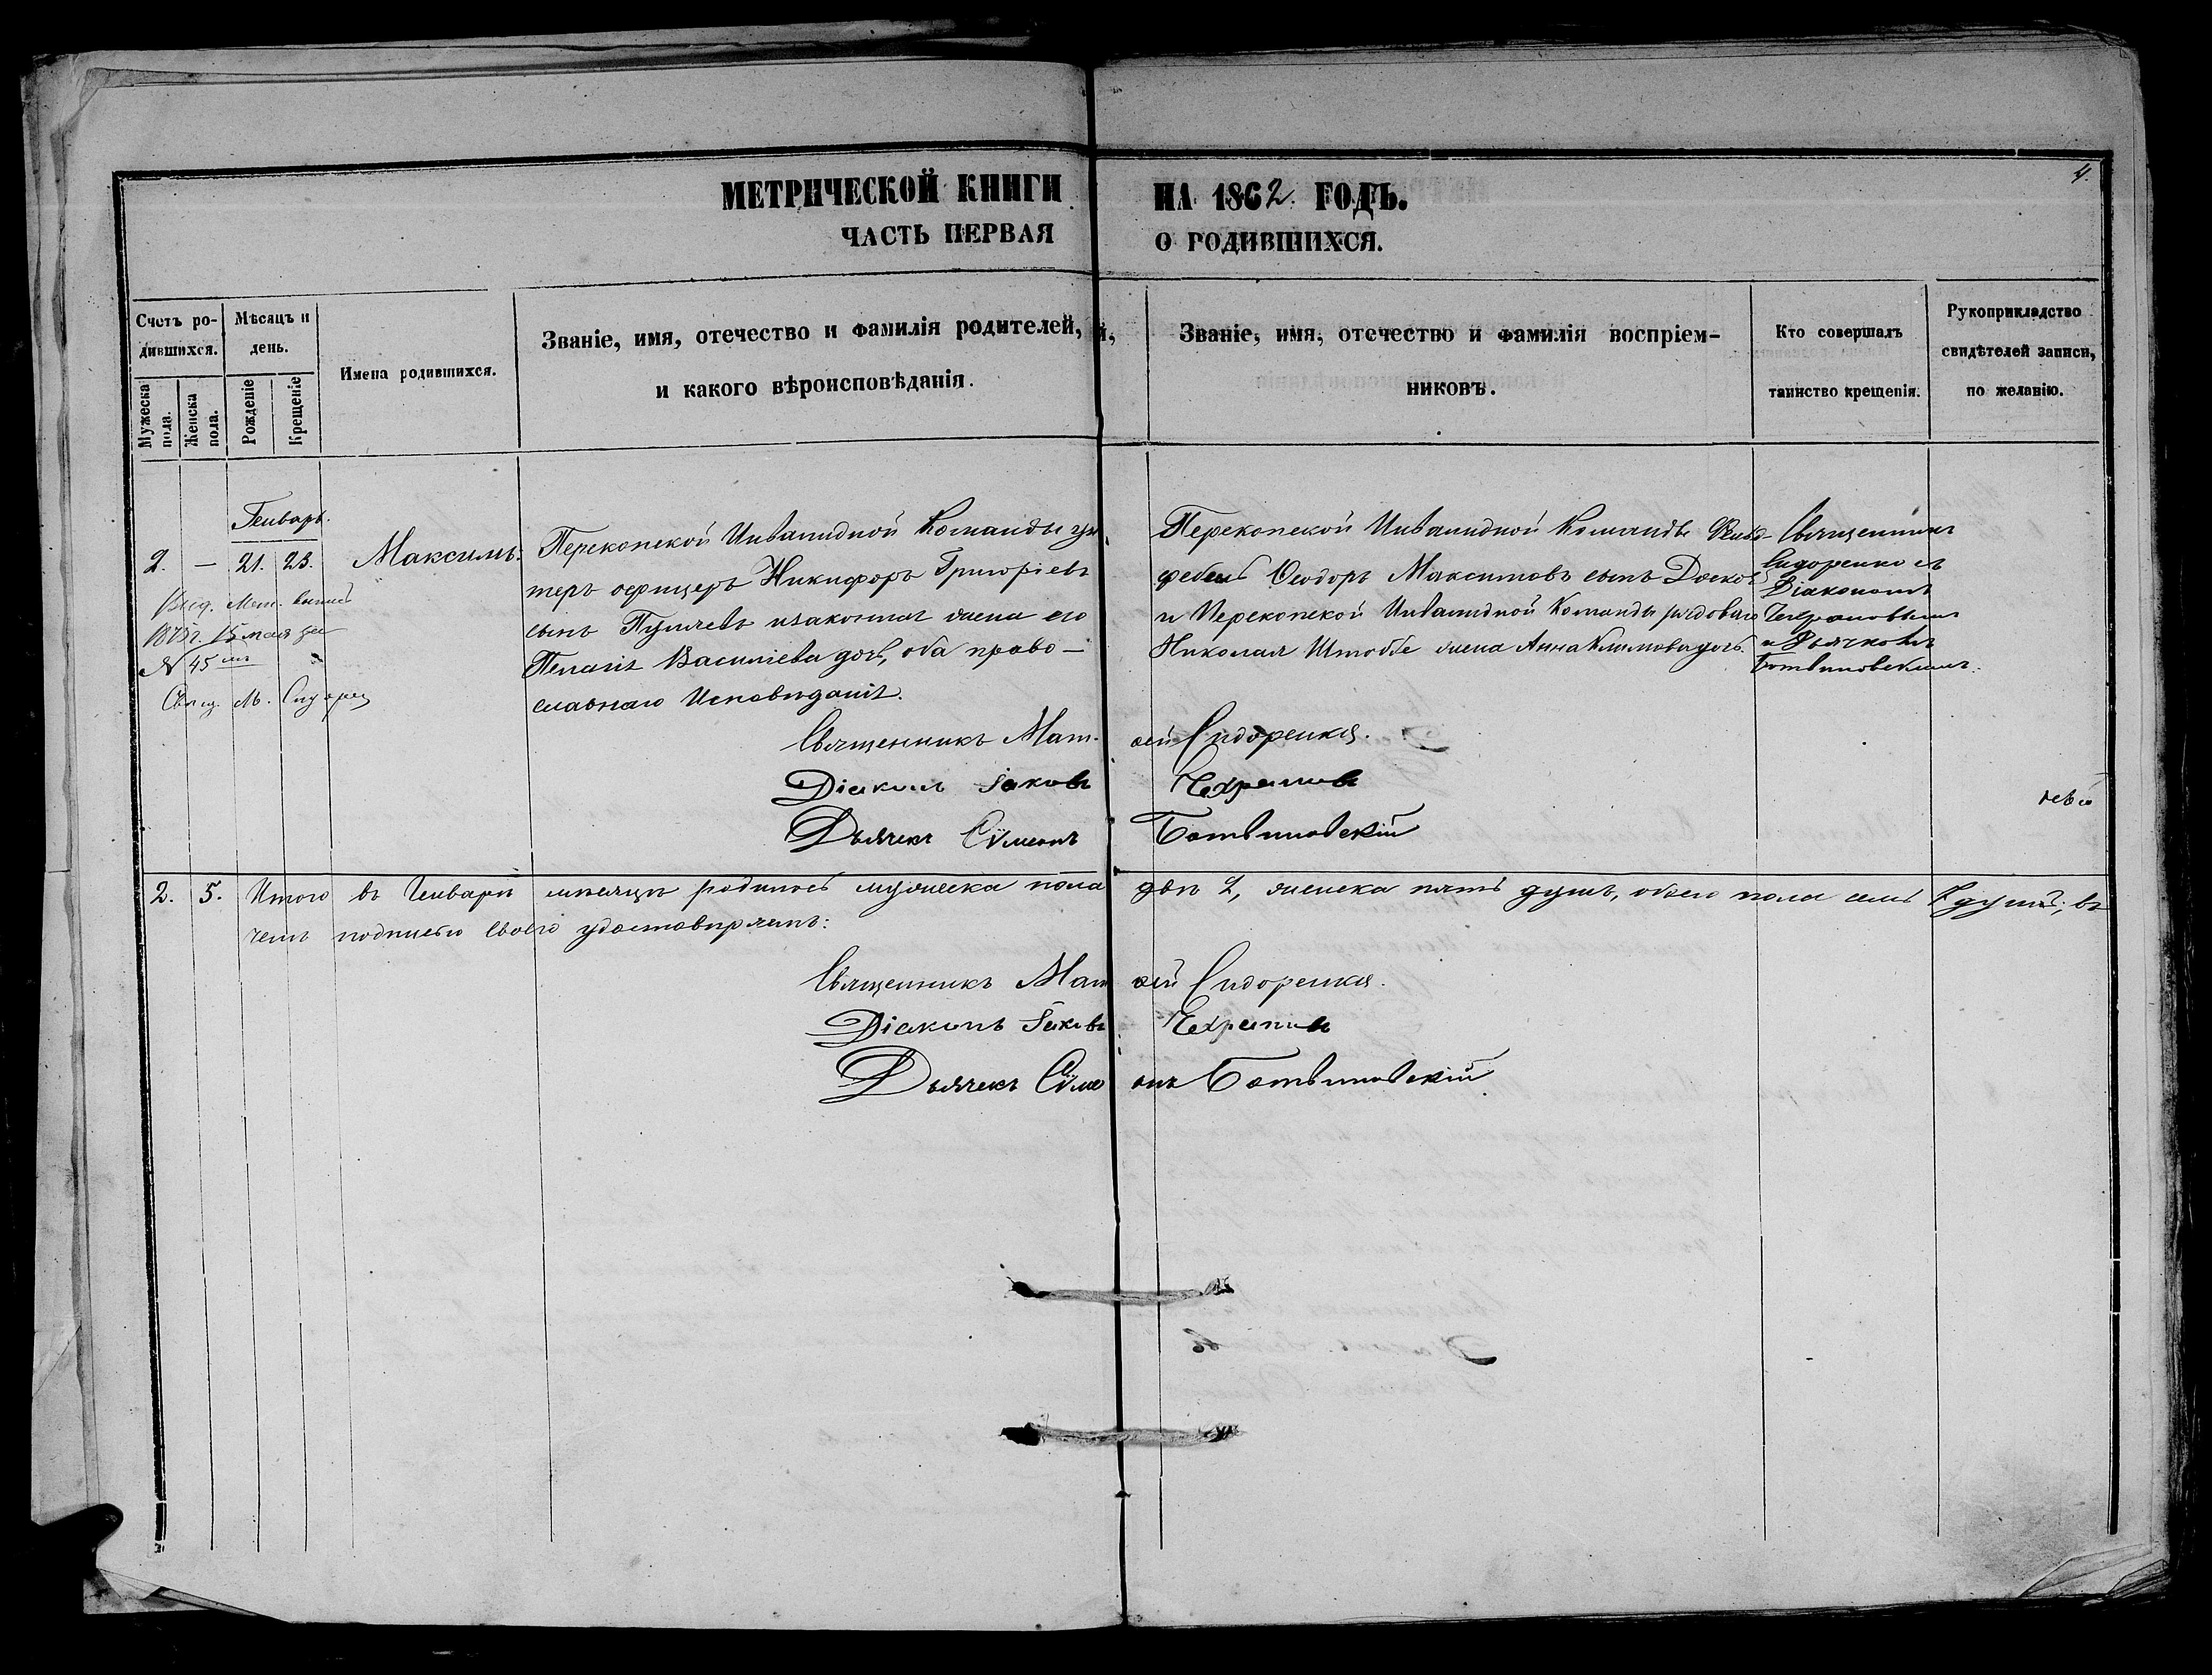 4.
МЕТРИЧЕСКОЙ КНИГИ НА 1862 ГОДЪ.
ЧАСТЬ ПЕРВАЯ О РОДИВШИХСЯ.
Счетъ ро-
дившихся.
Мужеска пола.
Женска пола.
Мѣсяцъ и
день.
Рожденіе
Крещеніе
Имена родившихся.
Званіе, имя, отечество и фамилія родителей,
и какого вѣроисповѣданія.
Званіе, имя, отчество и фамилія воспріем-
никовъ.
Кто совершалъ
таинство крещенія.
Рукоприкладство
свидѣтелей записи,
по желанію.
Генварь.
2. — 21. 23. Максимъ.
Выд. Мет.
1875г. 15 мая за
N 45
Свящ. М.
Перекопской Инвалидной Команды ун
теръ офицеръ Никифоръ Григоріевъ
сынъ и законная жена его
Пелагія Василіева доч, оба право-
славнаго Исповѣданія.
Перекопской Инвалидной Команды Фельд-
фебель Ѳеодоръ Максимовъ сынъ
и Перекопской Инвалидной Команды рядоваго
Николая жена Анна Климова дочь.
Священникъ
Сидоренко съ
Діакономъ
и Дьячкомъ
Ботвиновскимъ.
Священникъ Матѳей Сидоренко.
Діаконъ Іаковъ
Дьячекъ Сѵмеонъ Ботвиновскій
2. 5. Итого въ Генварѣ мѣсяцѣ родилось мужеска пола двѣ 2, женска пять душъ, обоего пола семь 7 душъ, въ
чемъ подписью своею удостовѣряемъ:
Священникъ Матѳей Сидоренко.
Діаконъ Іаковъ
Дьячекъ Сѵмеонъ Ботвиновскій.